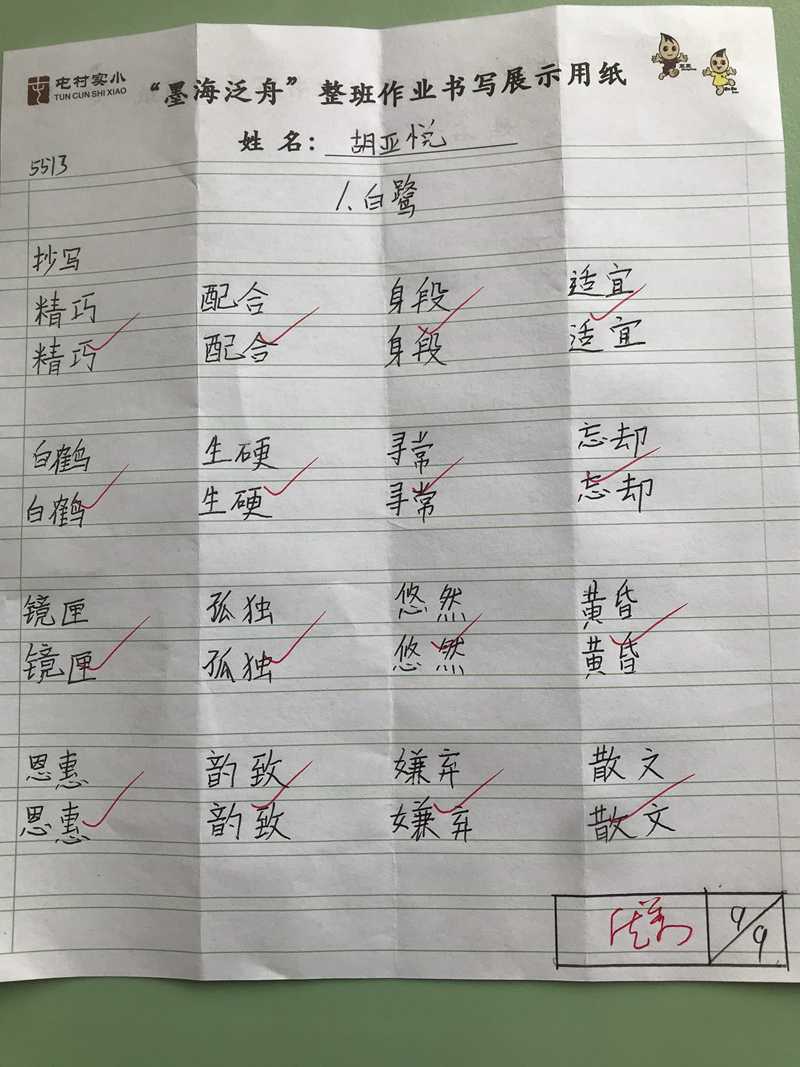 屯村实小
TUN CUN SHI XIAO
“墨海泛舟”整班作业书写展示用纸
姓名：胡亚悦
5513
1.白鹭
抄写
精巧 配合 身段 适宜
精巧 配合 身段 适宜
白鹤 生硬 寻常 忘却
白鹤 生硬 寻常 忘却
镜匣 孤独 悠然 黄昏
镜匣 孤独 悠然 黄昏
恩惠 韵致 嫌弃 散文
恩惠 韵致 嫌弃 散文
9/9